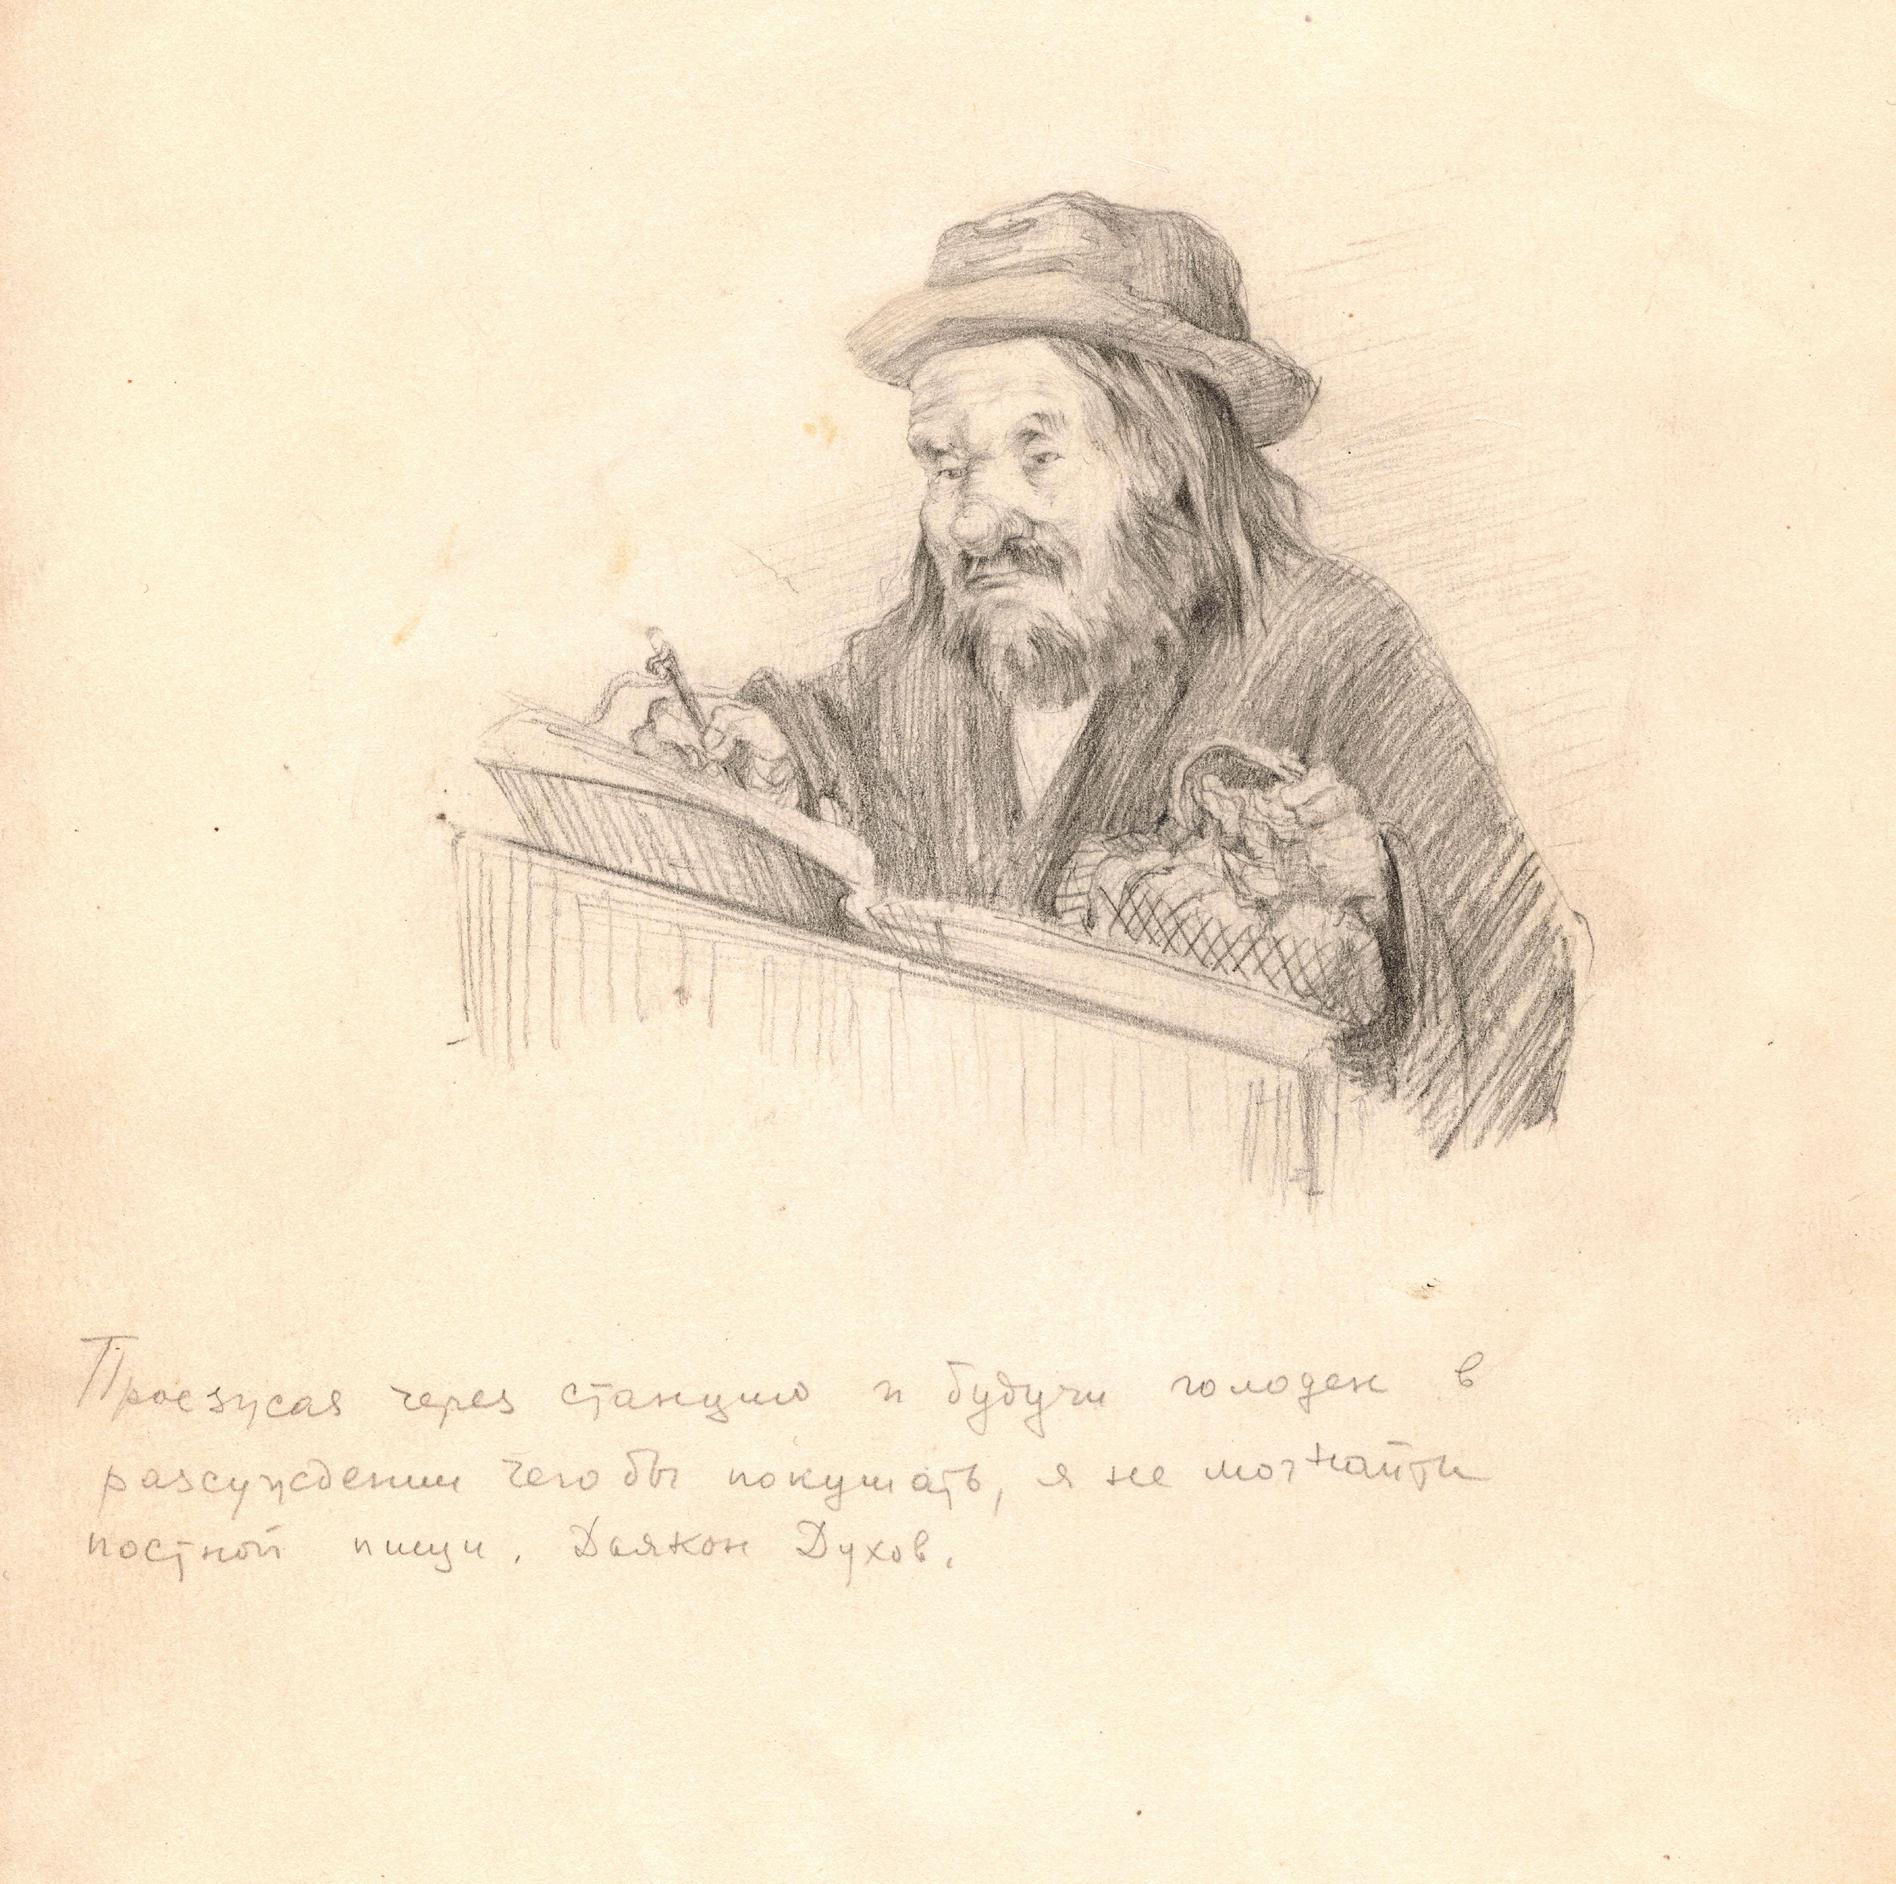 Проезжая через станцию и будучи голоден в
разсуждении чего бы покушать, я не мог найти
постной пищи. Дьякон Духов.